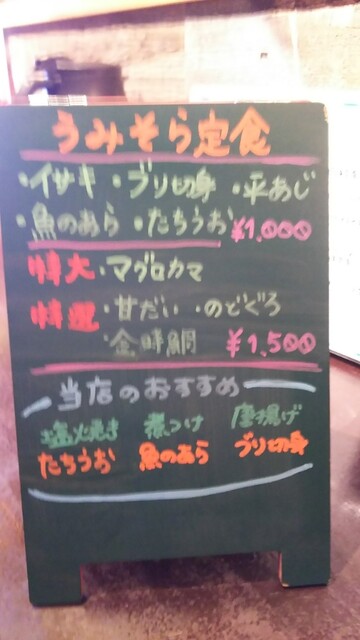 うみそら定食
・イサキ ・ブリ切身 ・平あじ
・魚のあら ・たちうお ¥1,000
特大・マグロカマ
特選・甘だい ・のどぐろ
・金時鯛 ¥1,500
当店のおすすめ
塩焼き 煮つけ 唐揚げ
たちうお 魚のあら ブリ切身